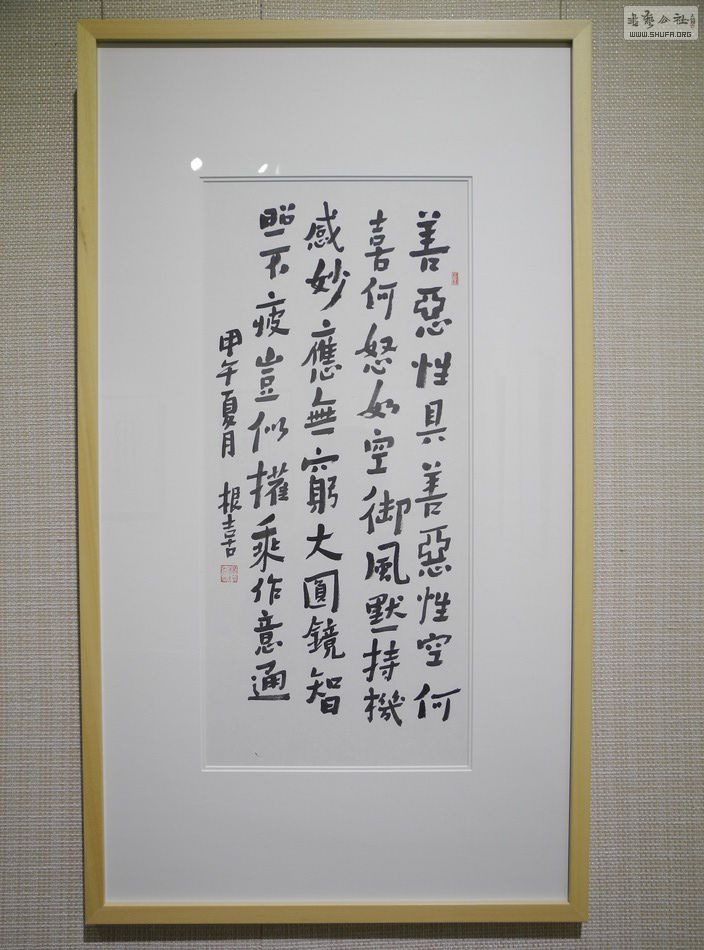 善惡性具善惡性空何
喜何怒如空御風默持機
感妙應無窮大圓鏡智
照不疲豈似權乘作意通
甲午夏月 根喜
書藝公社
WWW.SHUFA.ORG